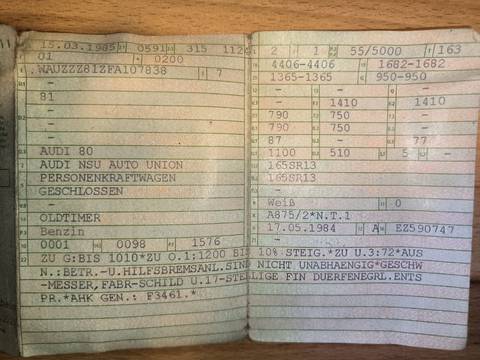 15.03.1985 0591 315 112
01 0200
WAUZZZ81ZFA107838 7
-
81
-
-
-
AUDI 80
AUDI NSU AUTO UNION
PERSONENKRAFTWAGEN
GESCHLOSSEN
-
OLDTIMER
Benzin
0001 0098 1576
2 1 55/5000 163
4406-4406 1682-1682
1365-1365 950-950
- - -
- 1410 1410
790 750 -
790 750 -
87 - 77
1100 510 5 -
165SR13
165SR13
-
Weiß 0
A875/2*N.T.1
17.05.1984 A EZ590747
-
ZU G:BIS 1010*ZU O.1:1200 BIS 10% STEIG.*ZU U.3:72*AUS
N.:BETR.-U.HILFSBREMSANL.SIND NICHT UNABHAENGIG*GESCHW
-MESSER,FABR-SCHILD U.17-STELLIGE FIN DUERFENEGRL.ENTS
PR.*AHK GEN.: F3461.*